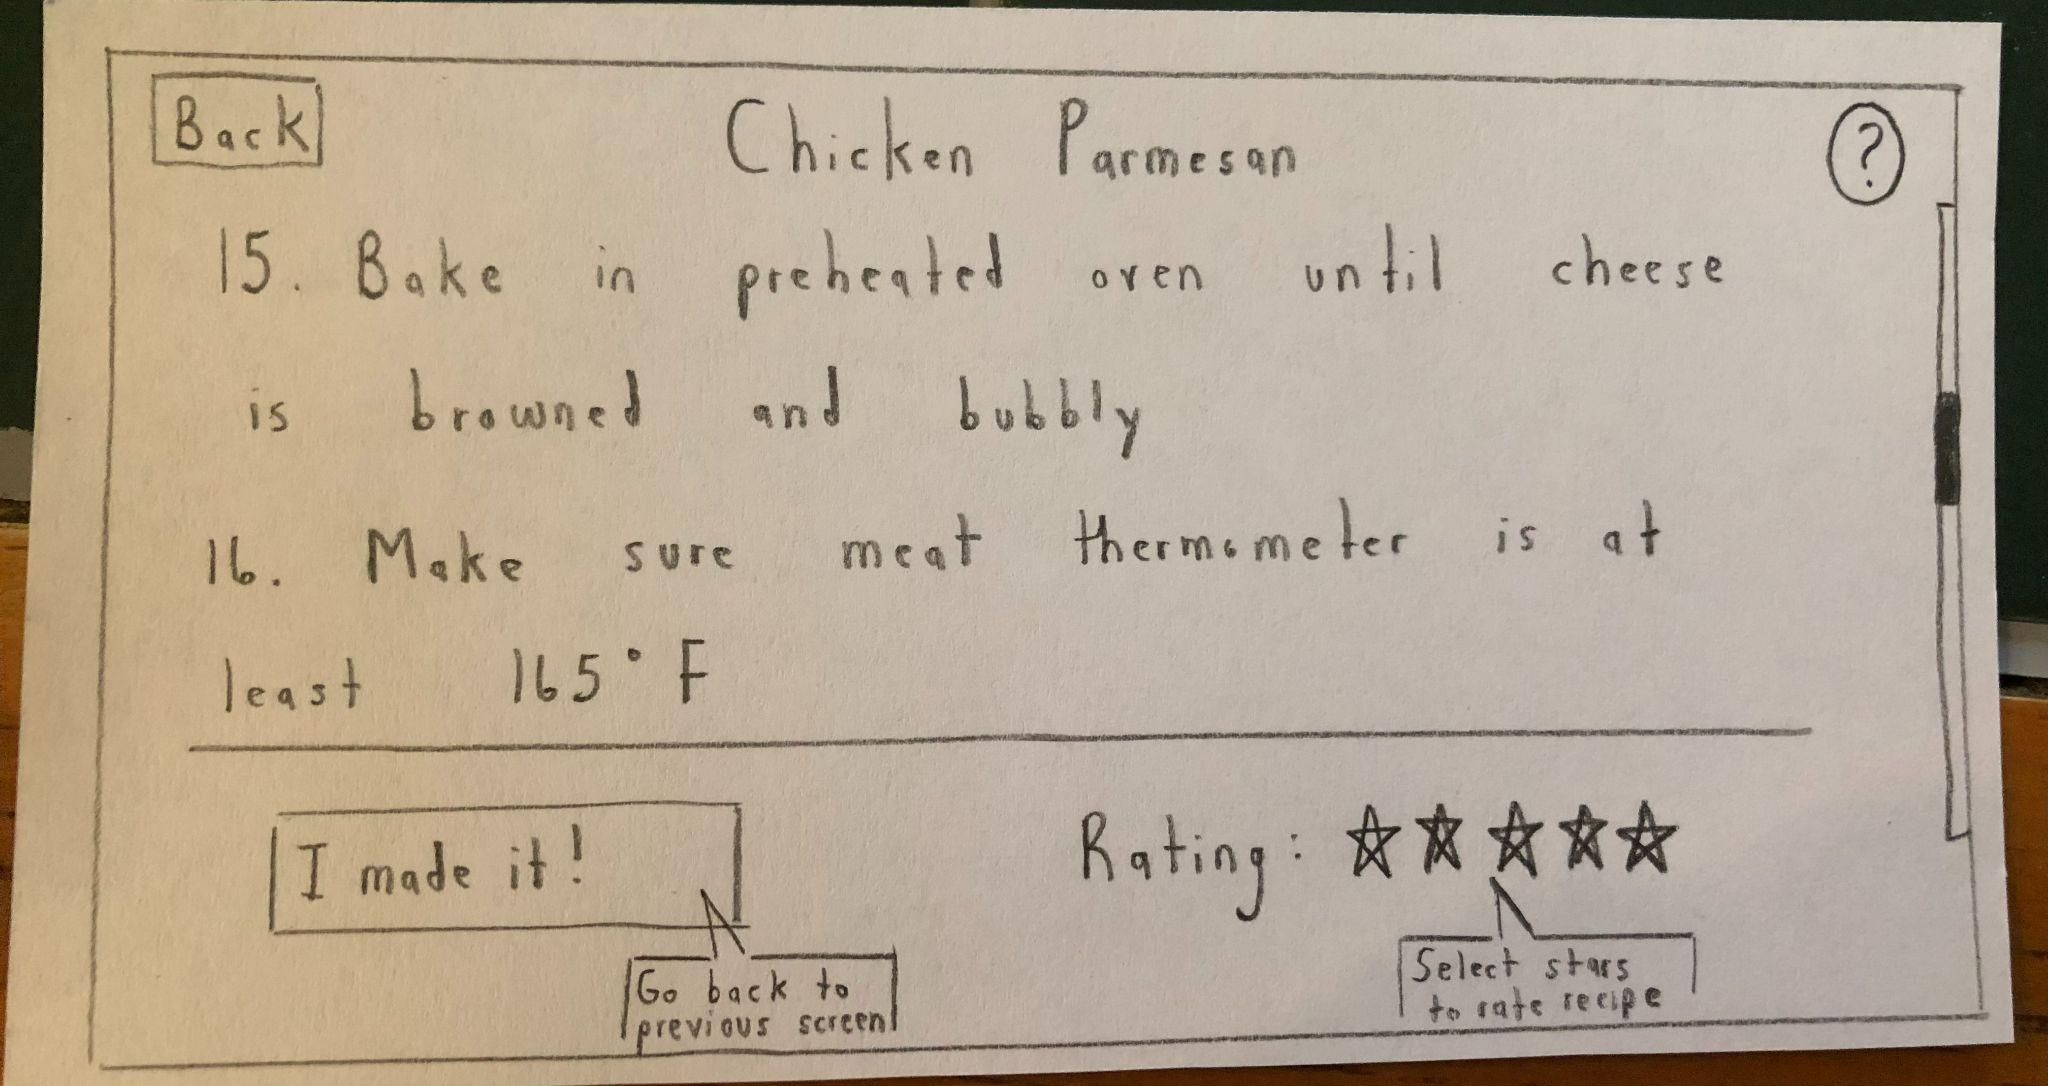 Back Chicken Parmesan ?
15. Bake in preheated oven until cheese
is browned and bubbly
16. Make sure meat thermometer is at
least 165° F
I made it! Rating:
Go back to
previous screen
Select stars
to rate recipe